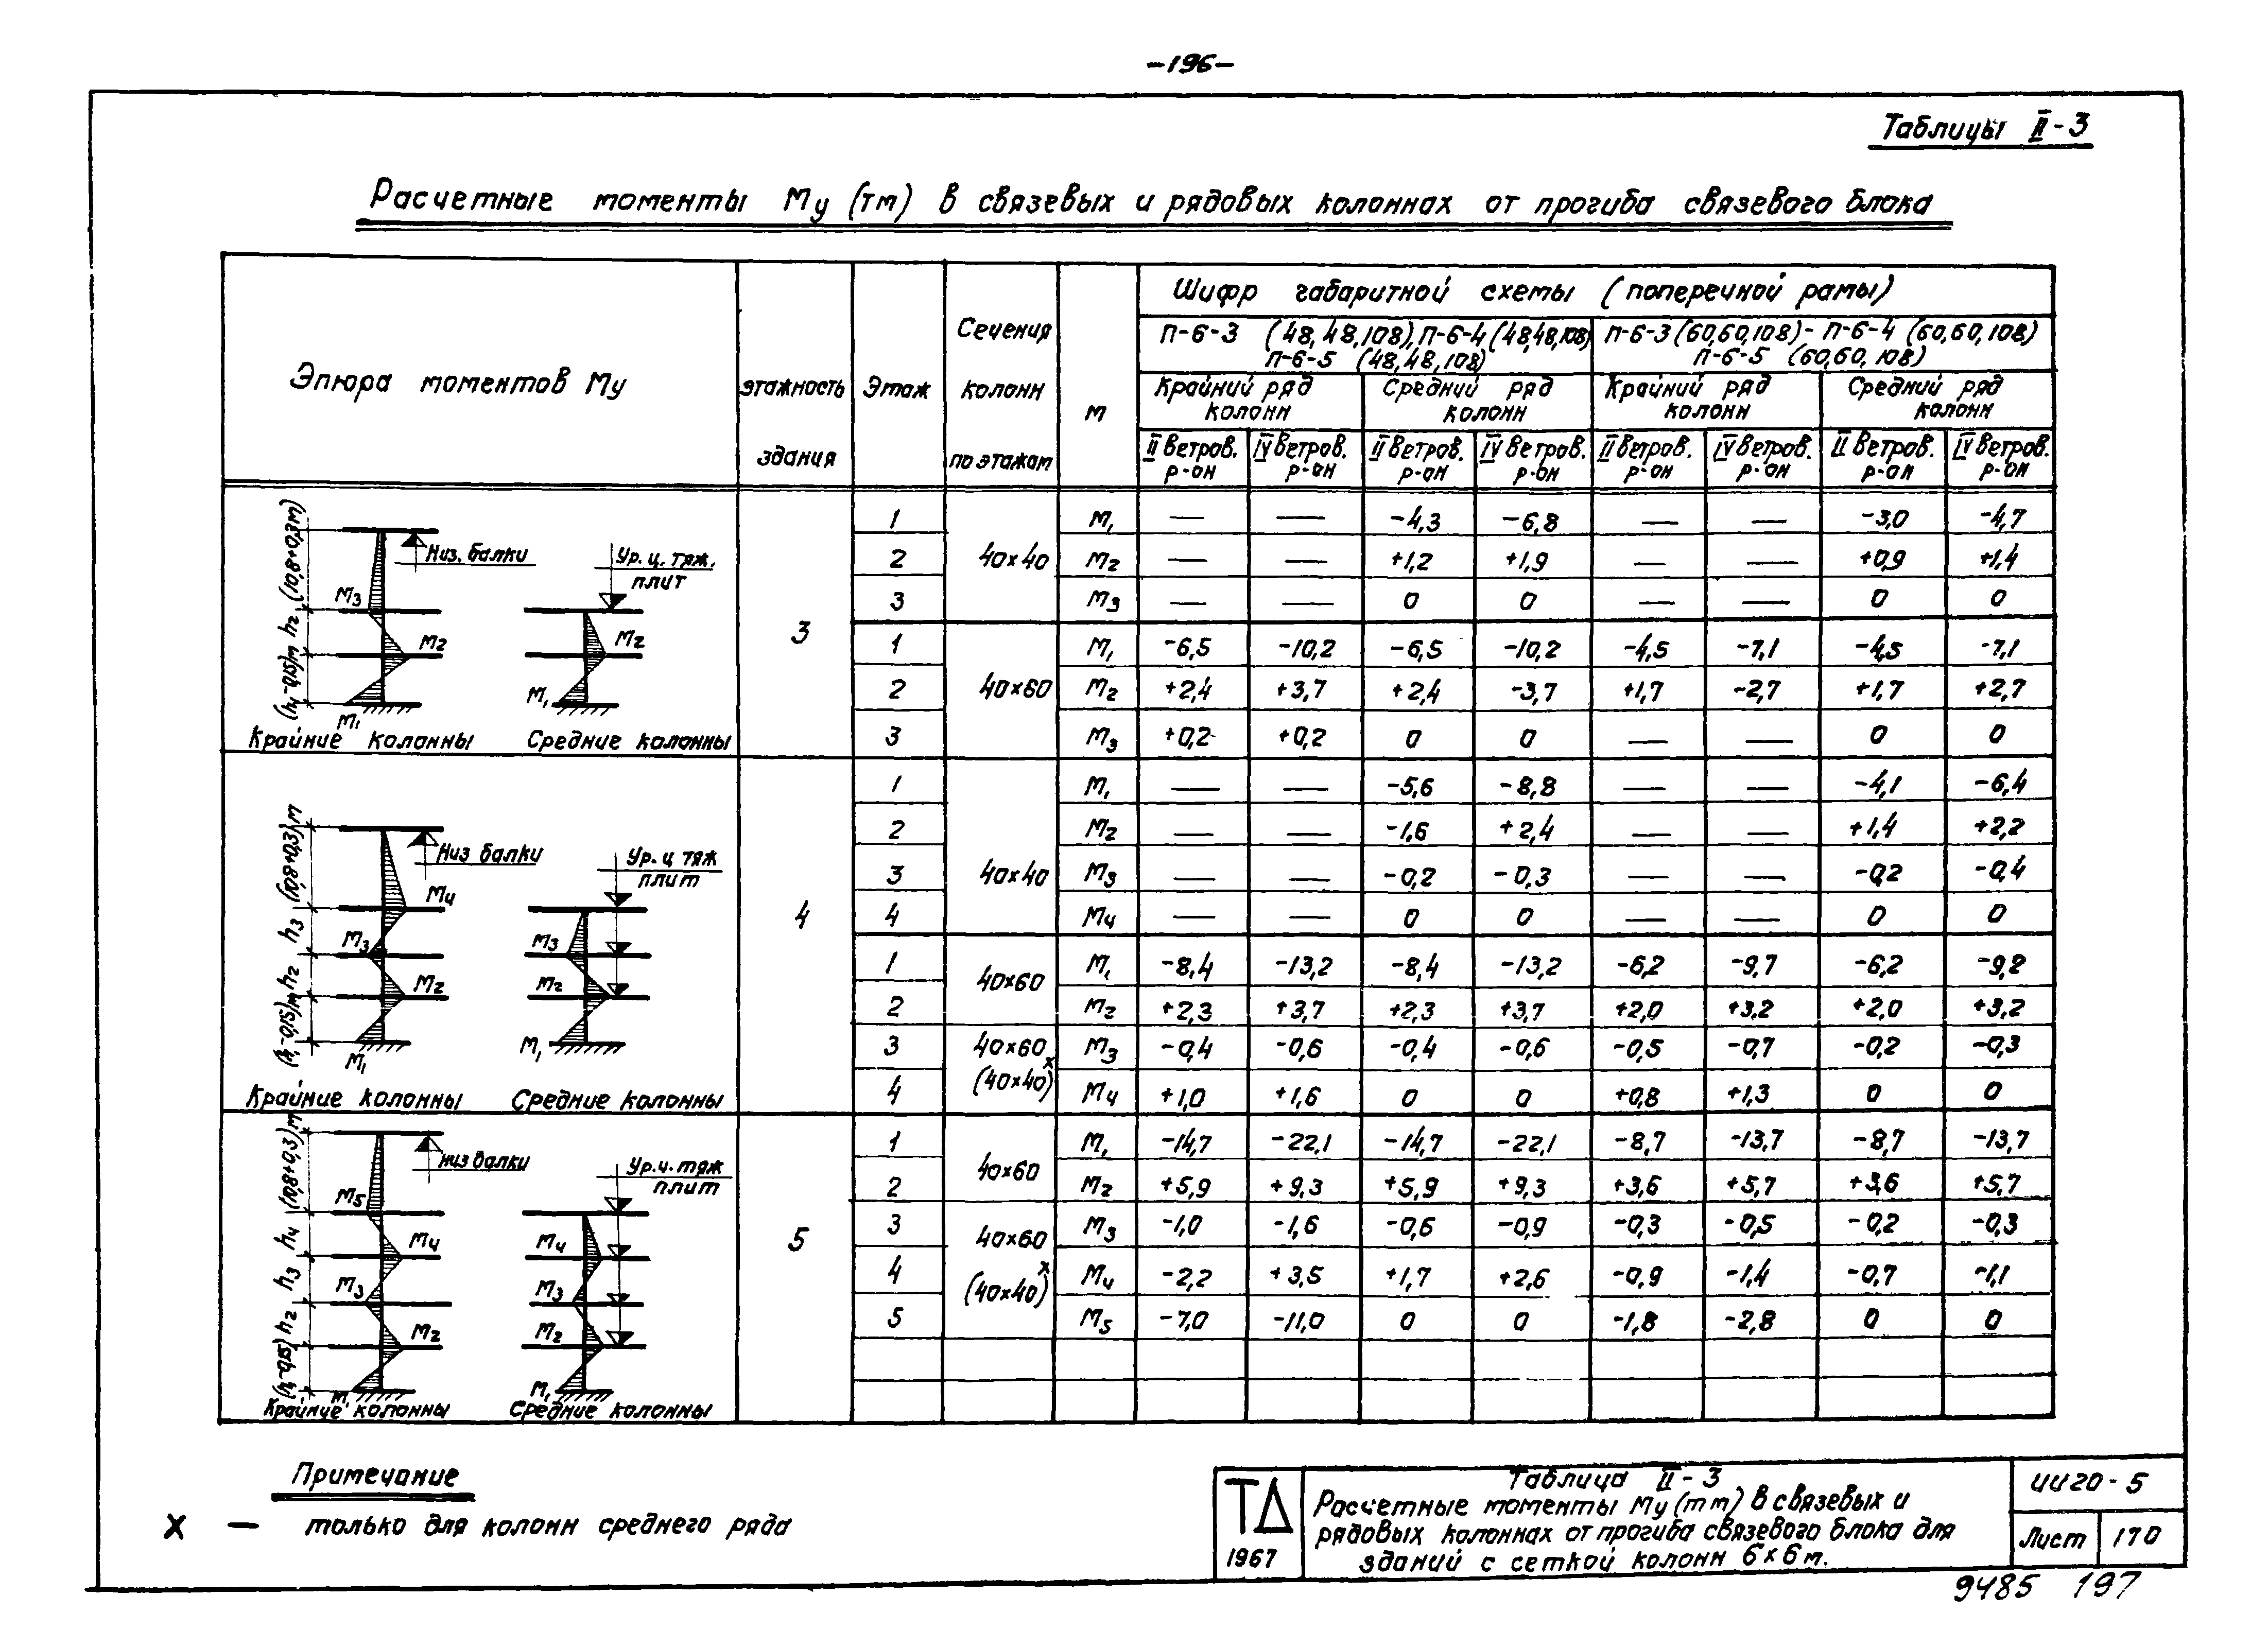 -196-
Таблицы II-3
Расчетные моменты Му (тм) в связевых и рядовых колоннах от прогиба связевого блока
Эпюра моментов Му
этажность здания
Этаж
Сечения колонн по этажам
м
Шифр габаритной схемы (поперечной рамы)
П-6-3 (48,48,108), П-6-4 (48,48,108)
П-6-5 (48,48,108)
П-6-3 (60,60,108)- П-6-4 (60,60,108)
П-6-5 (60,60,108)
Крайний ряд колонн
Средний ряд колонн
Крайний ряд колонн
Средний ряд колонн
II ветров. р-он
IV ветров. р-он
II ветров. р-он
IV ветров. р-он
II ветров. р-он
IV ветров. р-он
II ветров. р-он
IV ветров. р-он
(10,8+0,3м)
h2
(h1-0,15)м
Низ. балки
Ур. ц. тяж. плит
М3
М2
М1
М2
М1
Крайние колонны
Средние колонны
3
40×40
1 М1 — — -4,3 -6,8 — — -3,0 -4,7
2 М2 — — +1,2 +1,9 — — +0,9 +1,4
3 М3 — — 0 0 — — 0 0
40×60
1 М1 -6,5 -10,2 -6,5 -10,2 -4,5 -7,1 -4,5 -7,1
2 М2 +2,4 +3,7 +2,4 -3,7 +1,7 -2,7 +1,7 +2,7
3 М3 +0,2 +0,2 0 0 — — 0 0
(10,8+0,3)м
h3
h2
(h1-0,15)м
Низ балки
Ур. ц тяж плит
М4
М3
М2
М1
М3
М2
М1
Крайние колонны
Средние колонны
4
40×40
1 М1 — — -5,6 -8,8 — — -4,1 -6,4
2 М2 — — -1,6 +2,4 — — +1,4 +2,2
3 М3 — — -0,2 -0,3 — — -0,2 -0,4
4 М4 — — 0 0 — — 0 0
40×60
1 М1 -8,4 -13,2 -8,4 -13,2 -6,2 -9,7 -6,2 -9,8
2 М2 +2,3 +3,7 +2,3 +3,7 +2,0 +3,2 +2,0 +3,2
40×60
(40×40)х
3 М3 -0,4 -0,6 -0,4 -0,6 -0,5 -0,7 -0,2 -0,3
4 М4 +1,0 +1,6 0 0 +0,8 +1,3 0 0
(10,8+0,3)м
h4
h3
h2
(h1-0,15)
Низ балки
Ур. ц. тяж плит
М5
М4
М3
М2
М
М4
М3
М2
М1
Крайние колонны
Средние колонны
5
40×60
1 М1 -14,7 -22,1 -14,7 -22,1 -8,7 -13,7 -8,7 -13,7
2 М2 +5,9 +9,3 +5,9 +9,3 +3,6 +5,7 +3,6 +5,7
40×60
(40×40)х
3 М3 -1,0 -1,6 -0,6 -0,9 -0,3 -0,5 -0,2 -0,3
4 М4 -2,2 +3,5 +1,7 +2,6 -0,9 -1,4 -0,7 -1,1
5 М5 -7,0 -11,0 0 0 -1,8 -2,8 0 0
Примечание
х — только для колонн среднего ряда
ТД
1967
Таблица II-3
Расчетные моменты Му (тм) в связевых и
рядовых колоннах от прогиба связевого блока для
зданий с сеткой колонн 6×6 м.
ИИ20-5
Лист 170
9485 197